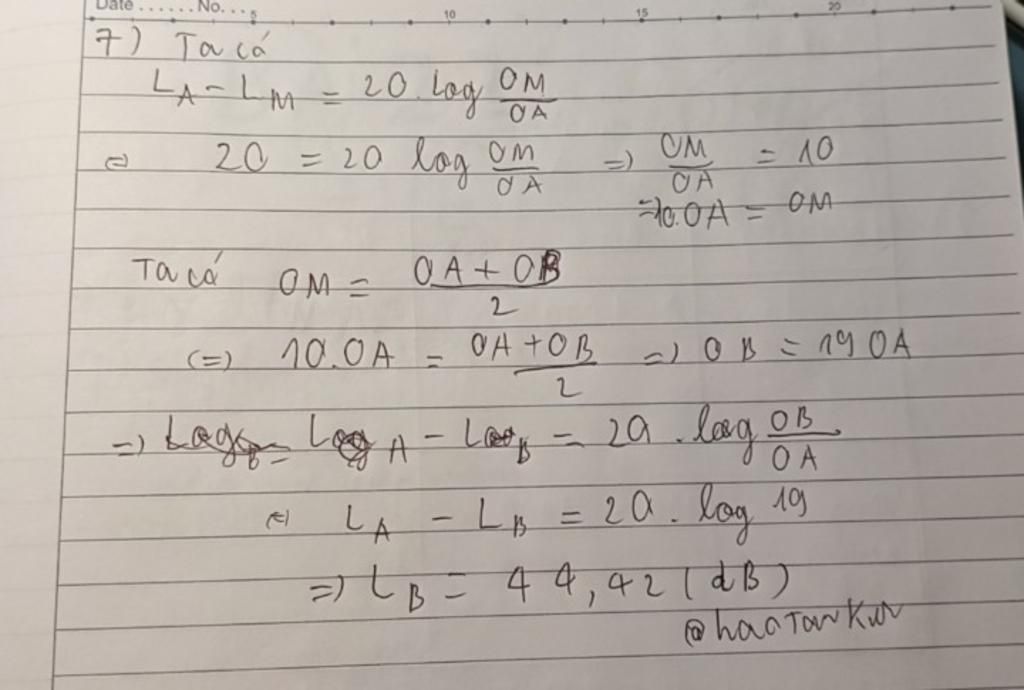 Date ...... No. ...
5 10 15 20
7) Ta có
L_A - L_M = 20. log OM/OA
⇔ 20 = 20 log OM/OA ⇒ OM/OA = 10
⇒ 10.OA = OM
Ta có OM = (OA + OB)/2
(=) 10.OA = (OA + OB)/2 =) OB = 19 OA
=) L_A - L_B = 20. log OB/OA
⇔ L_A - L_B = 20. log 19
=) L_B = 44,42 (dB)